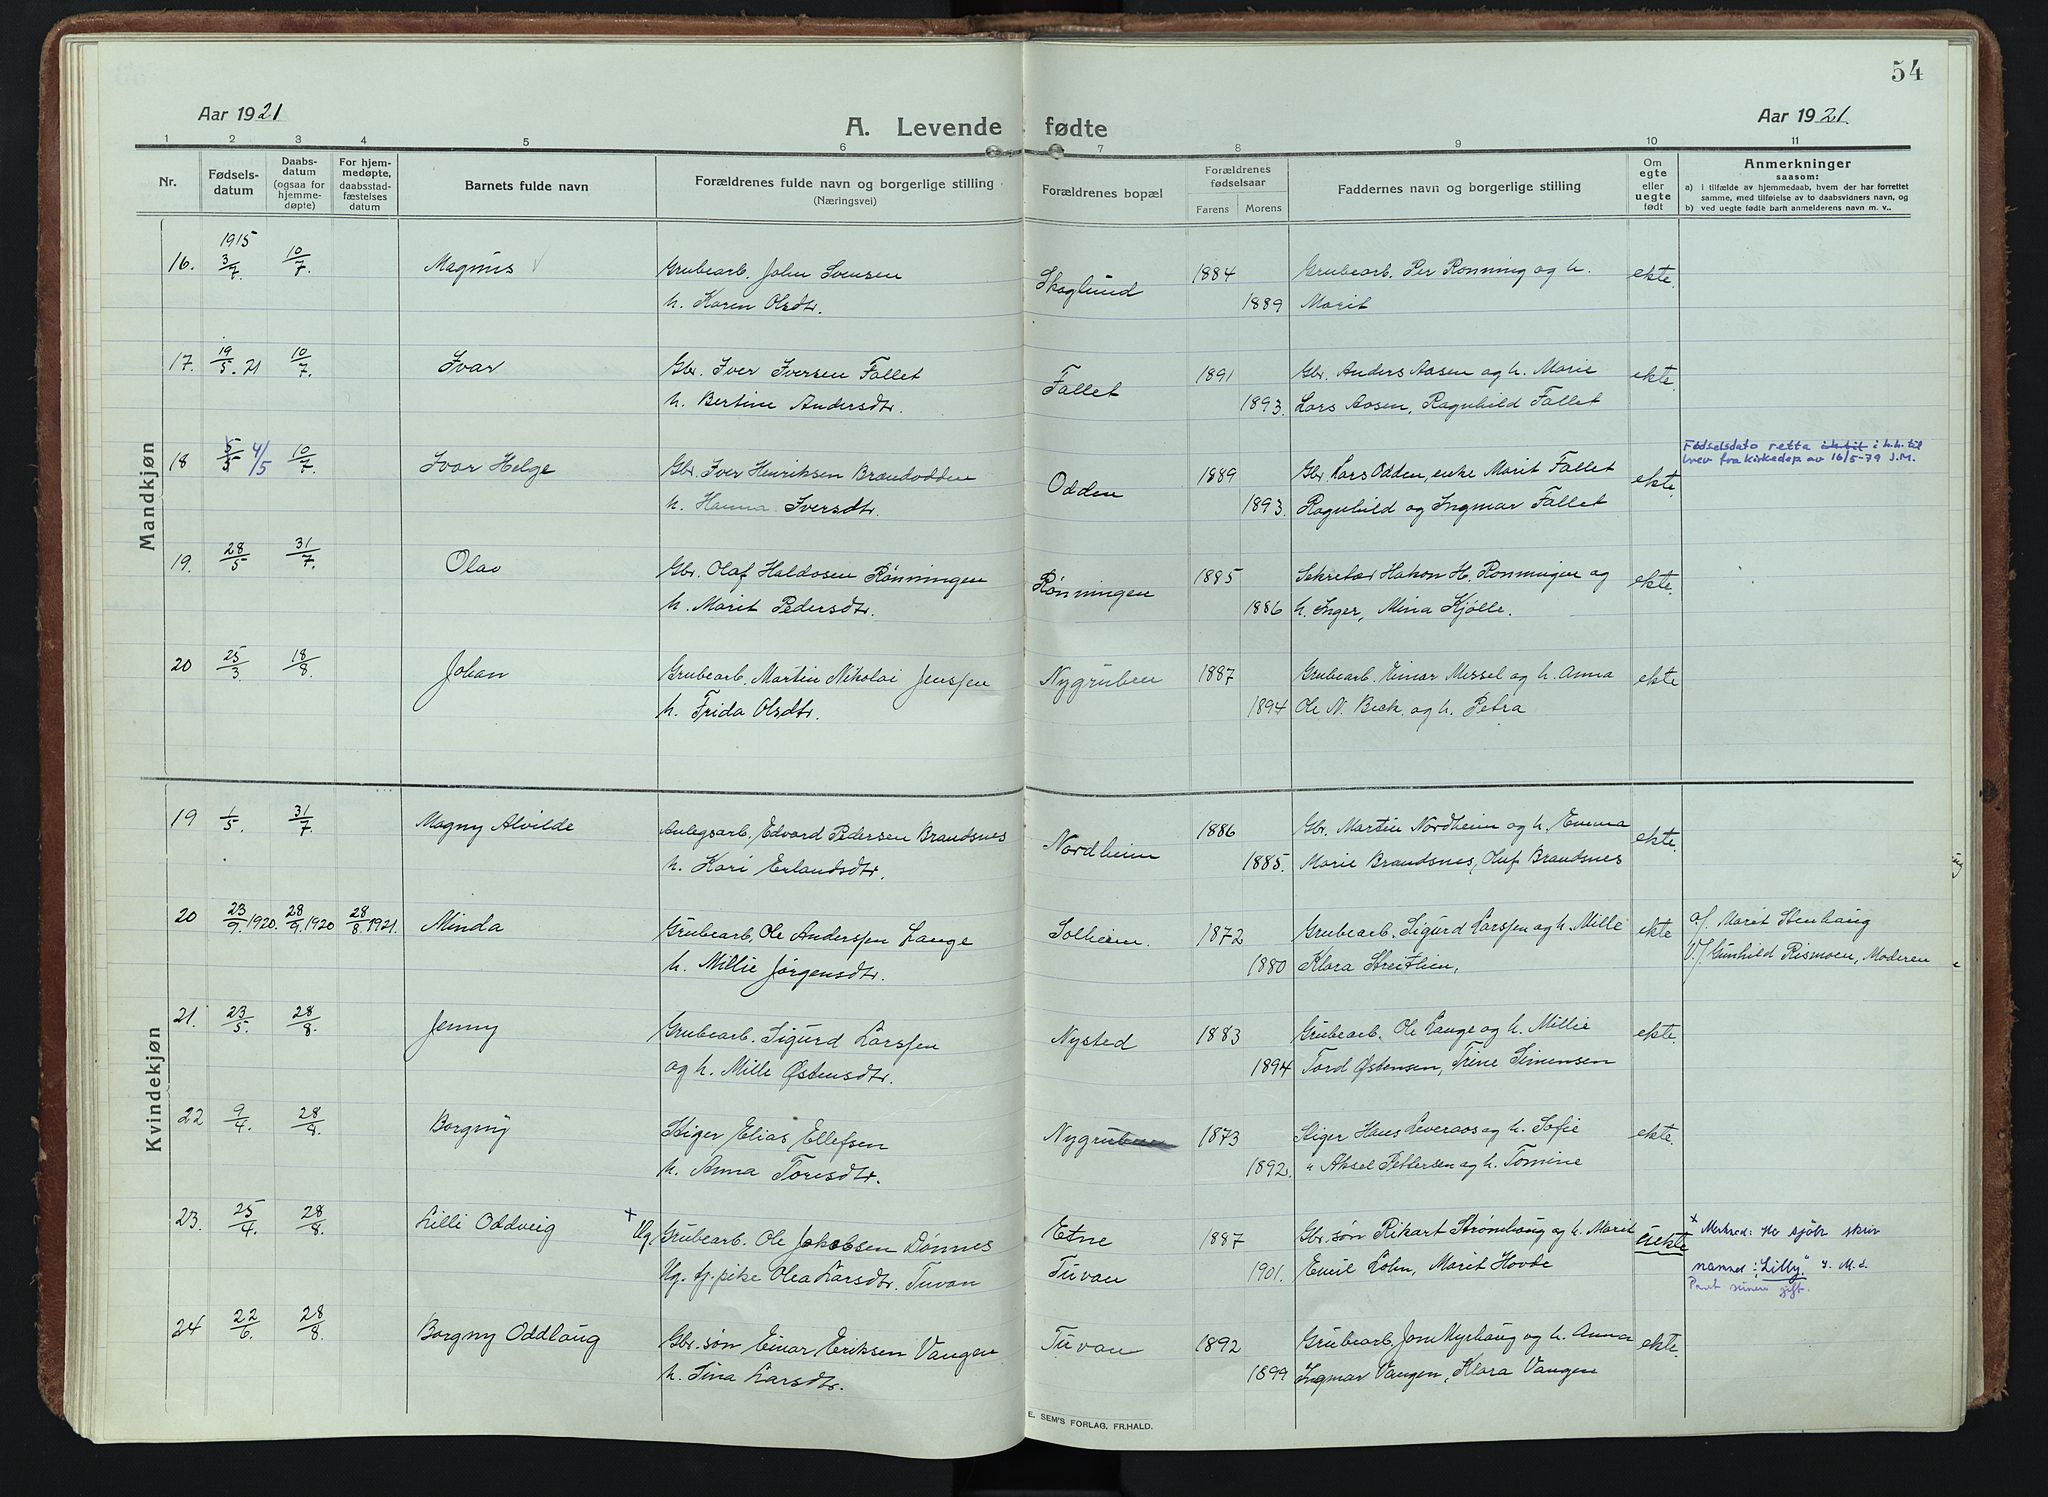 54
Aar 1921
A. Levende fødte
Aar 1921.
1 2 3 4 5 6 7 8 9 10 11
Nr.
Fødselsdatum
Daabsdatum (ogsaa for hjemmedøpte)
For hjemmedøpte, daabsstadfæstelses datum
Barnets fulde navn
Forældrenes fulde navn og borgerlige stilling (Næringsvei)
Forældrenes bopæl
Forældrenes fødselsaar
Farens Morens
Faddernes navn og borgerlige stilling
Om egte eller uegte født
Anmerkninger
saasom:
a) i tilfælde av hjemmedaab, hvem der har forrettet
samme, med tilføielse av to daabsvidners navn, og
b) ved uegte fødte barn anmelderens navn m. v..
Mandkjøn
1915
16. 3/7 10/7. Magnus Grubearb. John Svensen Skoglund 1884 Grubearb. Per Rønning og h. ekte.
h. Karen Olsdtr. 1889 Marit
17. 19/5. 21 10/7. Ivar Gbr. Iver Iversen Fallet Fallet 1891 Gbr. Anders Aasen og h. Marie ekte.
h. Bertine Andersdtr. 1893. Lars Aasen, Ragnhild Fallet
18 5/5 4/5 10/7. Ivar Helge Gbr. Iver Henriksen Brandodden Odden 1889 Gbr. Lars Odden, enke Marit Fallet ekte. Fødselsdato retta i h.h. til
h. Hanna Iversdtr. 1893. Ragnhild og Ingmar Fallet brev fra Kirkedep. av 16/5-79 J.M.
19. 28/5 31/7. Olav Gbr. Olaf Haldosen Rønningen Rønningen 1895 Sekretær Hakon H. Rønningen og ekte.
h. Marit Pedersdtr. 1886 h. Inger, Mina Kjølle.
20 25/3 18/8. Johan Grubearb. Martin Nikolai Jenssen Nygruben 1887 Grubearb. Einar Messel og h. Anna ekte
h. Frida Olsdtr. 1894 Ole N. Beck og h. Petra
Kvindekjøn
19 1/5. 31/7. Magny Alvilde Anlegsarb. Edvard Pedersen Brandsnes Nordheim 1886 Gbr. Martin Nordheim og h. Emma ekte.
h. Kari Erlandsdtr. 1885. Marie Brandsnes, Oluf Brandsnes
20 23/9. 1920. 28/9. 1920 28/8. 1921. Minda Grubearb. Ole Anderssen Lange Solheim. 1872 Grubearb. Sigurd Larssen og h. Mille ekte a/ Marit Stenhaug
h. Millie Jørgensdtr. 1880 Klara Streitlien, b/ Gunhild Rismoen, Moderen
21. 23/5. 28/8. Jenny Grubearb. Sigurd Larssen Nysted 1883 Grubearb. Ole Lange og h. Millie ekte.
og h. Mille Østensdtr. 1894 Tord Østensen, Trine Simensen
22 9/4. 28/8. Borgny Stiger Elias Ellefsen Nygruben 1873 Stiger Hans Leveraas og h. Sofie ekte.
h. Anna Toresdtr. 1892. " Aksel Pettersen og h. Tomine
23. 25/4. 28/8. Lilli Oddveig + Ug. Grubearb. Ole Jakobsen Dønnes Etne 1887 Gbr. søn Rikart Strømhaug og h. Marit uekte + Merknad: Ho sjølv skriv
Ug. tj. pike Olea Larsdtr. Tuvan Tuvan 1901. Emil Lohn, Marit Hovde namnet: "Lilly" J. M.
gift.
24 22/6. 28/8. Borgny Oddlaug Gbr. søn Einar Eriksen Vangen Tuvan 1892 Grubearb. Jon Myrhaug og h. Anna ekte.
h. Sina Larsdtr. 1899 Ingmar Vangen, Klara Vangen
E. SEM'S FORLAG, FR.HALD.